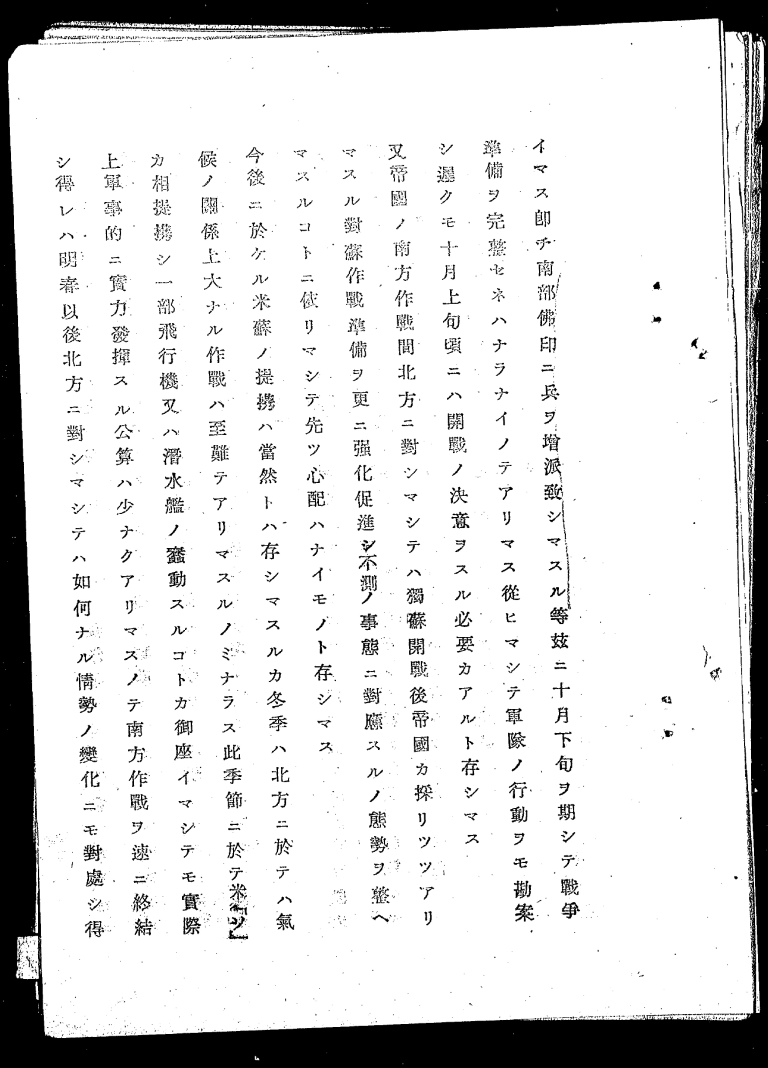 イマス卽チ南部佛印ニ兵ヲ增派致シマスル等玆ニ十月下旬ヲ期シテ戰爭
準備ヲ完整セネハナラナイノテアリマス從ヒマシテ軍隊ノ行動ヲモ勘案
シ遲クモ十月上旬頃ニハ開戰ノ決意ヲスル必要カアルト存シマス
又帝國ノ南方作戰間北方ニ對シマシテハ獨蘇開戰後帝國カ採リツツアリ
マスル對蘇作戰準備ヲ更ニ强化促進シ不測ノ事態ニ對應スルノ態勢ヲ整ヘ
マスルコトニ依リマシテ先ツ心配ハナイモノト存シマス
今後ニ於ケル米蘇ノ提携ハ當然トハ存シマスルカ冬季ハ北方ニ於テハ氣
候ノ關係上大ナル作戰ハ至難テアリマスルノミナラス此季節ニ於テ米「ソ」
カ相提携シ一部飛行機又ハ潛水艦ノ蠢動スルコトカ御座イマシテモ實際
上軍事的ニ實力發揮スル公算ハ少ナクアリマスノテ南方作戰ヲ速ニ終結
シ得レハ明春以後北方ニ對シマシテハ如何ナル情勢ノ變化ニモ對處シ得